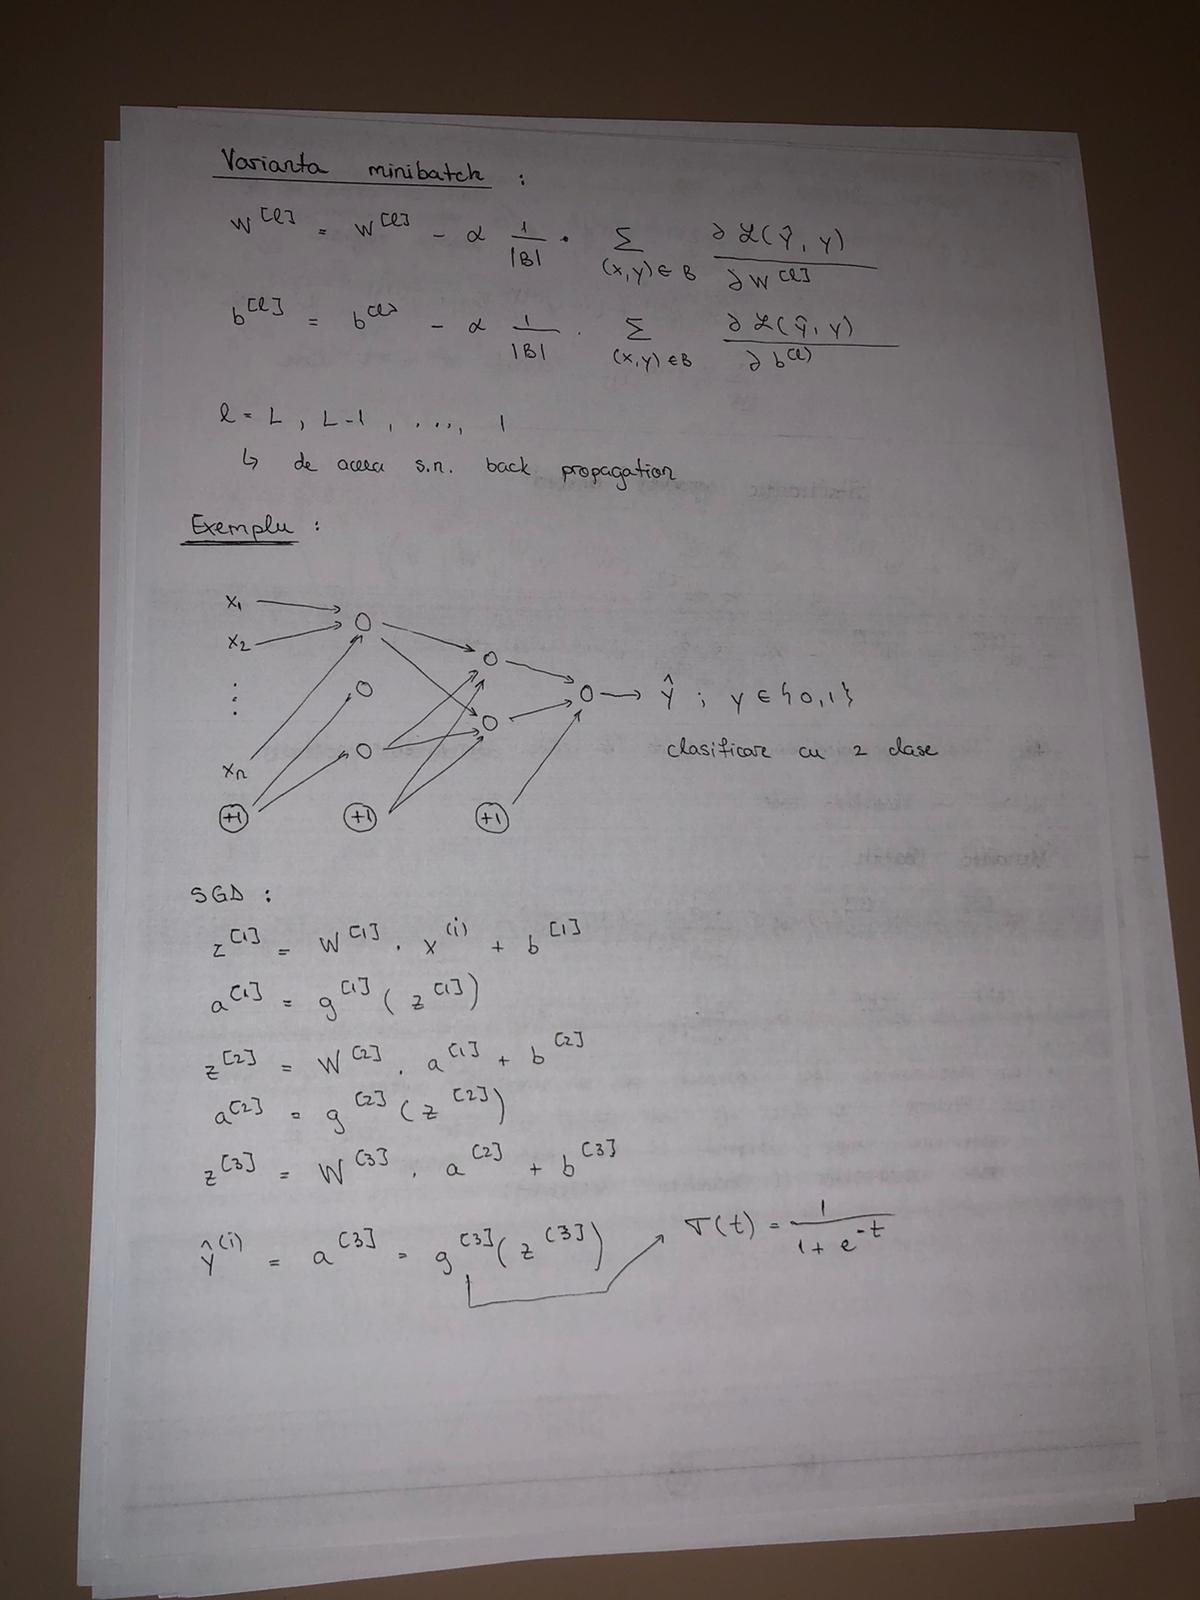 Varianta minibatch :
W^[l] = W^[l] - α 1/|B| · Σ_(x,y)∈B ∂ℒ(ŷ, y)/∂W^[l]
b^[l] = b^[l] - α 1/|B| · Σ_(x,y)∈B ∂ℒ(ŷ, y)/∂b^(l)
l = L, L-1, ...., 1
↳ de aceea s.n. back propagation
Exemplu :
x₁
x₂
⋮
xₙ
+1 +1 +1
ŷ ; y ∈ {0,1}
clasificare cu 2 clase
SGD :
z^[1] = W^[1] · x^(i) + b^[1]
a^[1] = g^[1] ( z^[1] )
z^[2] = W^[2] · a^[1] + b^[2]
a^[2] = g^[2] ( z^[2] )
z^[3] = W^[3] · a^[2] + b^[3]
ŷ^(i) = a^[3] = g^[3] ( z^[3] ) → σ(t) = 1/(1 + e^-t)